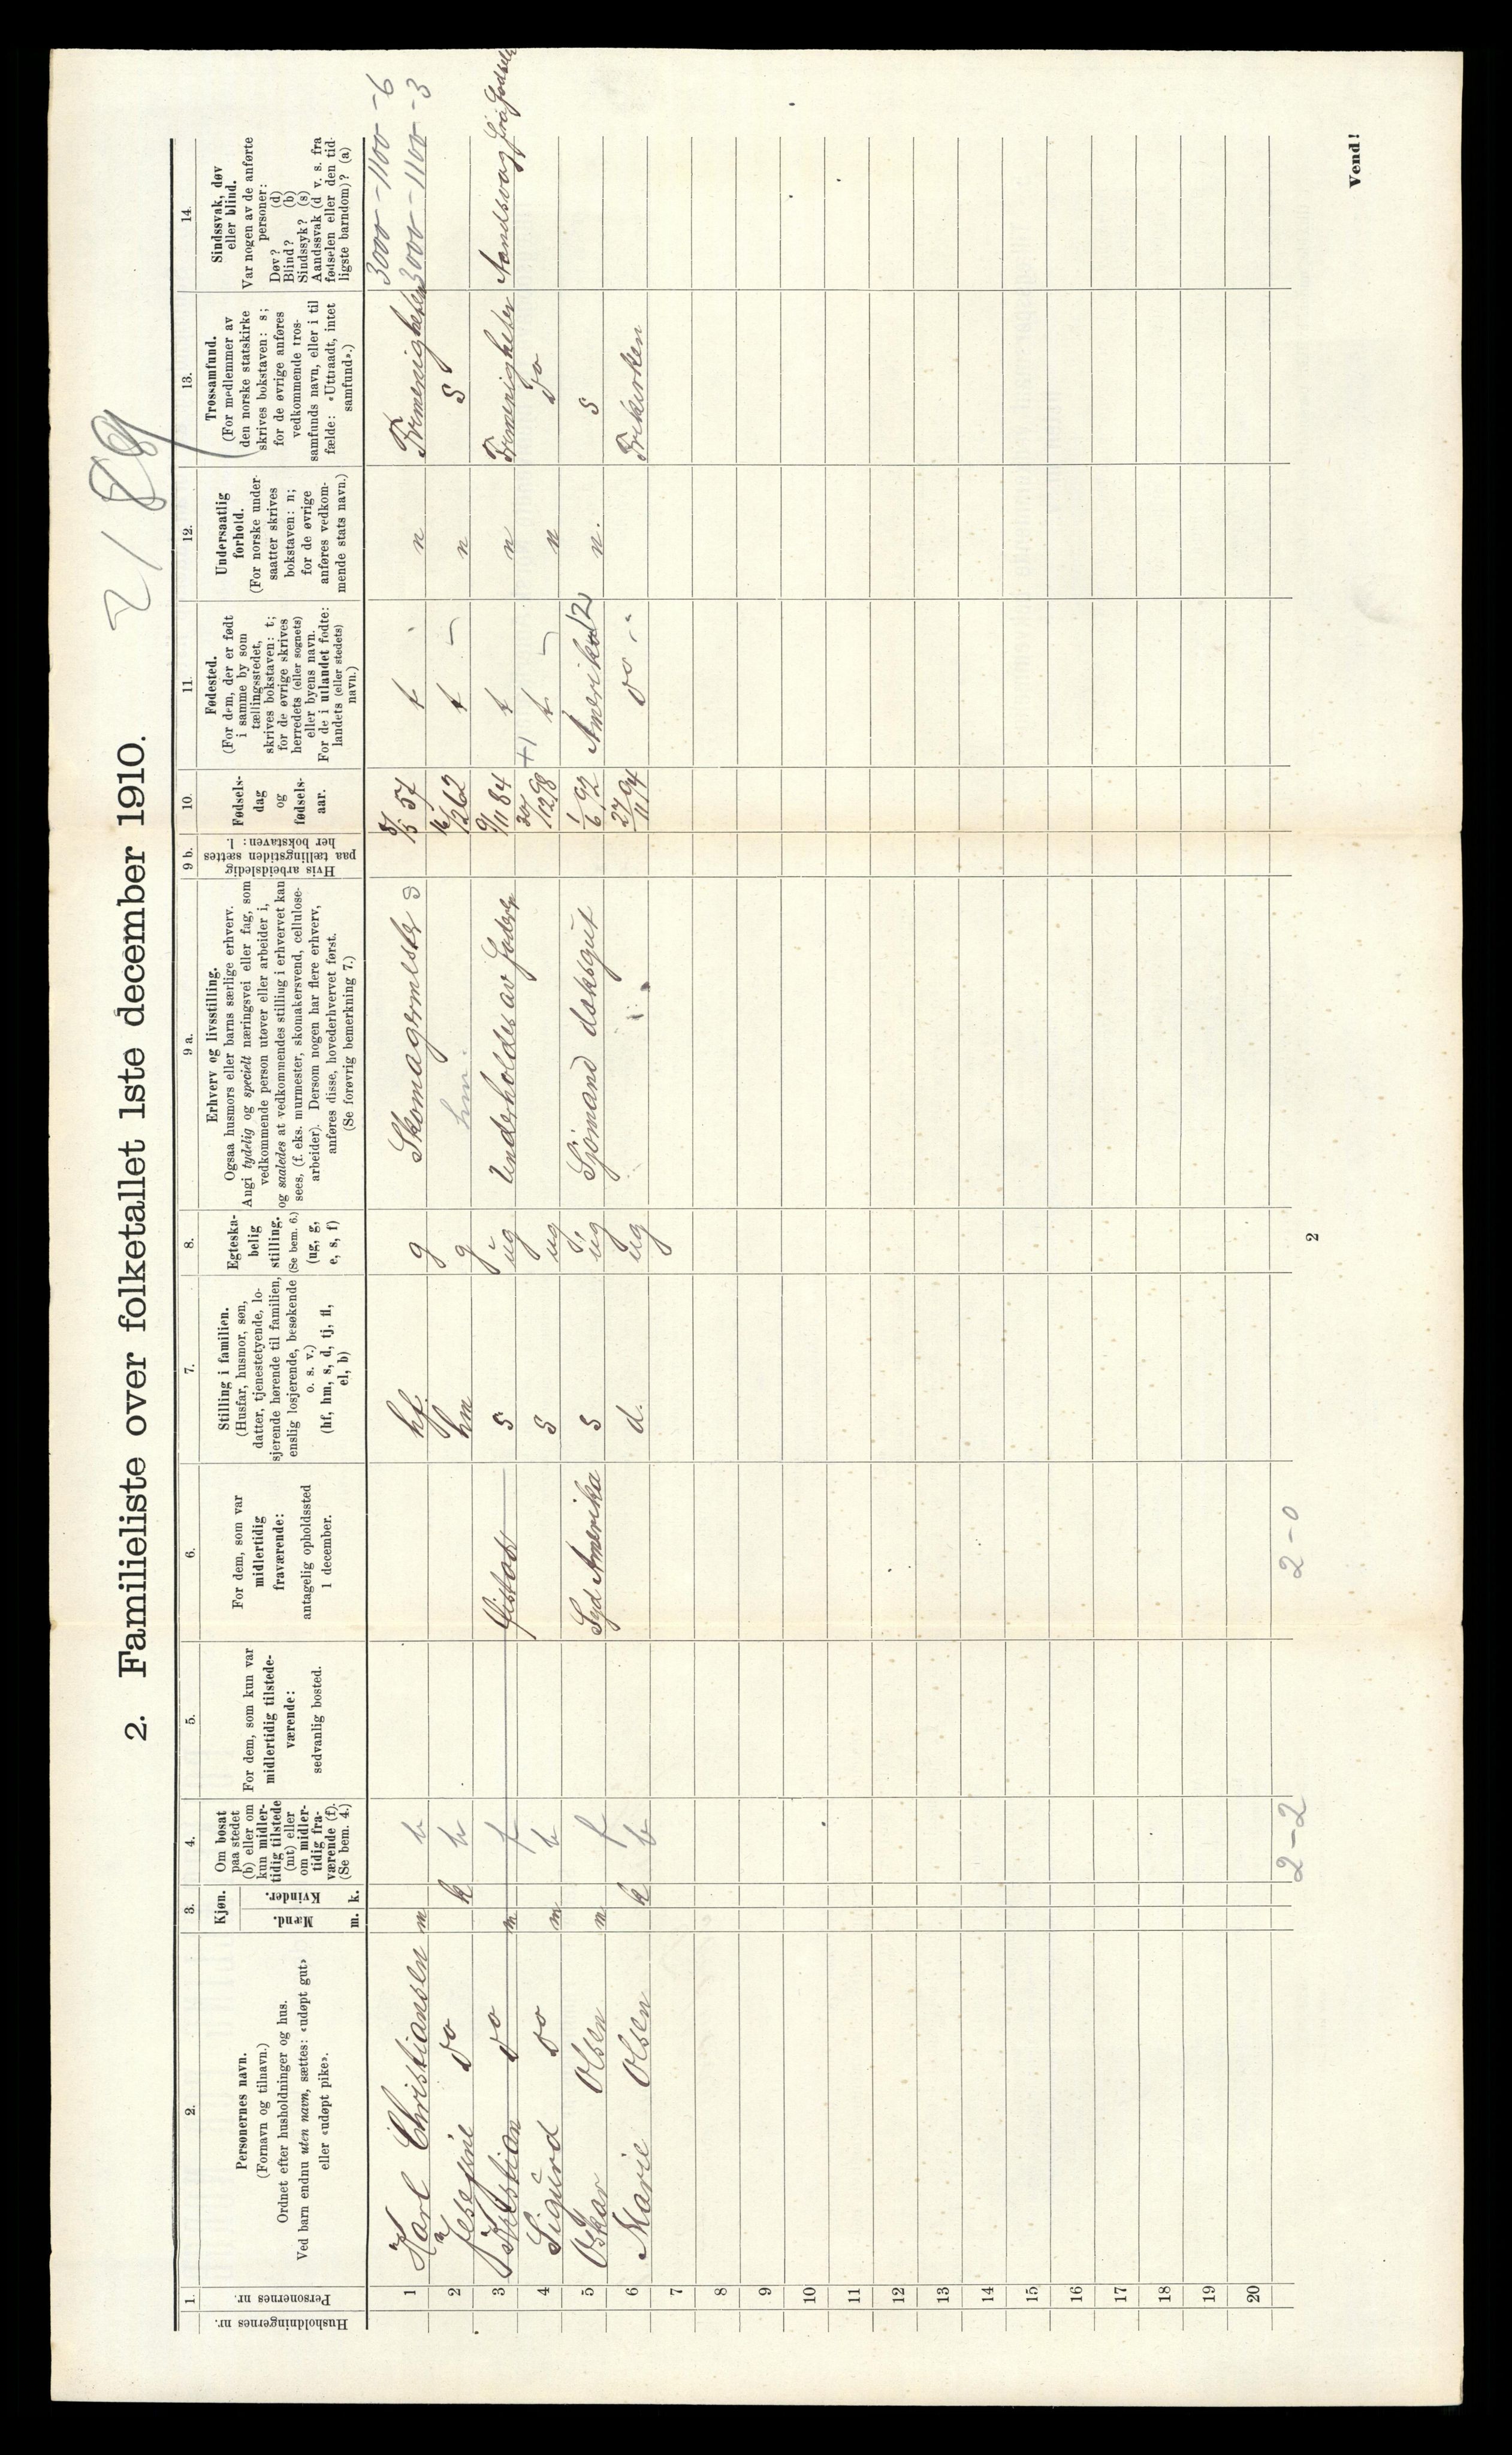 2. Familieliste over folketallet 1ste december 1910.
2/89
1.
Husholdningernes nr.
Personernes nr.
2.
Personernes navn.
(Fornavn og tilnavn.)
Ordnet efter husholdninger og hus.
Ved barn endnu uten navn, sættes: «udøpt gut»
eller «udøpt pike».
3.
Kjøn.
Mænd.
Kvinder.
m. k.
4.
Om bosat
paa stedet
(b) eller om
kun midler-
tidig tilstede
(mt) eller
om midler-
tidig fra-
værende (f).
(Se bem. 4.)
5.
For dem, som kun var
midlertidig tilstede-
værende:
sedvanlig bosted.
6.
For dem, som var
midlertidig
fraværende:
antagelig opholdssted
1 december.
7.
Stilling i familien.
(Husfar, husmor, søn,
datter, tjenestetyende, lo-
sjerende hørende til familien,
enslig losjerende, besøkende
o. s. v.)
(hf, hm, s, d, tj, fl,
el, b)
8.
Egteska-
belig
stilling.
(Se bem. 6.)
(ug, g,
e, s, f)
9 a.
Erhverv og livsstilling.
Ogsaa husmors eller barns særlige erhverv.
Angi tydelig og specielt næringsvei eller fag, som
vedkommende person utøver eller arbeider i,
og saaledes at vedkommendes stilling i erhvervet kan
sees, (f. eks. murmester, skomakersvend, cellulose-
arbeider). Dersom nogen har flere erhverv,
anføres disse, hovederhvervet først.
(Se forøvrig bemerkning 7.)
9 b.
Hvis arbeidsledig
paa tællingstiden sættes
her bokstaven: l.
10.
Fødsels-
dag
og
fødsels-
aar.
11.
Fødested.
(For dem, der er født
i samme by som
tællingsstedet,
skrives bokstaven: t;
for de øvrige skrives
herredets (eller sognets)
eller byens navn.
For de i utlandet fødte:
landets (eller stedets)
navn.)
12.
Undersaatlig
forhold.
(For norske under-
saatter skrives
bokstaven: n;
for de øvrige
anføres vedkom-
mende stats navn.)
13.
Trossamfund.
(For medlemmer av
den norske statskirke
skrives bokstaven: s;
for de øvrige anføres
vedkommende tros-
samfunds navn, eller i til
fælde: «Uttraadt, intet
samfund».)
14.
Sindssvak, døv
eller blind.
Var nogen av de anførte
personer:
Døv? (d)
Blind? (b)
Sindssyk? (s)
Aandssvak (d. v. s. fra
fødselen eller den tid-
ligste barndom)? (a)
1 Karl Christiansen m b hf g Skomagermester 3 57 t n Frimenigheden 3000-1100-6
2 Josefine do k b hm g hm 62 t n s 3000-1100-3
3 Kristian do m f s ug Underholdes av 9/11 84 t n Frimenigheden Aandsvag fra Fødselen
4 Sigurd do m b s ug 20/12 98 t n do
5 Oskar Olsen m f Syd Amerika s ug Sjømand daksgut 1/6 92 Amerika n. s
6 Marie Olsen k b d. ug 27/11 94 do Frikirken
7
8
9
10
11
12
13
14
15
16
17
18
19
20
2-2 2-0
2
Vend!